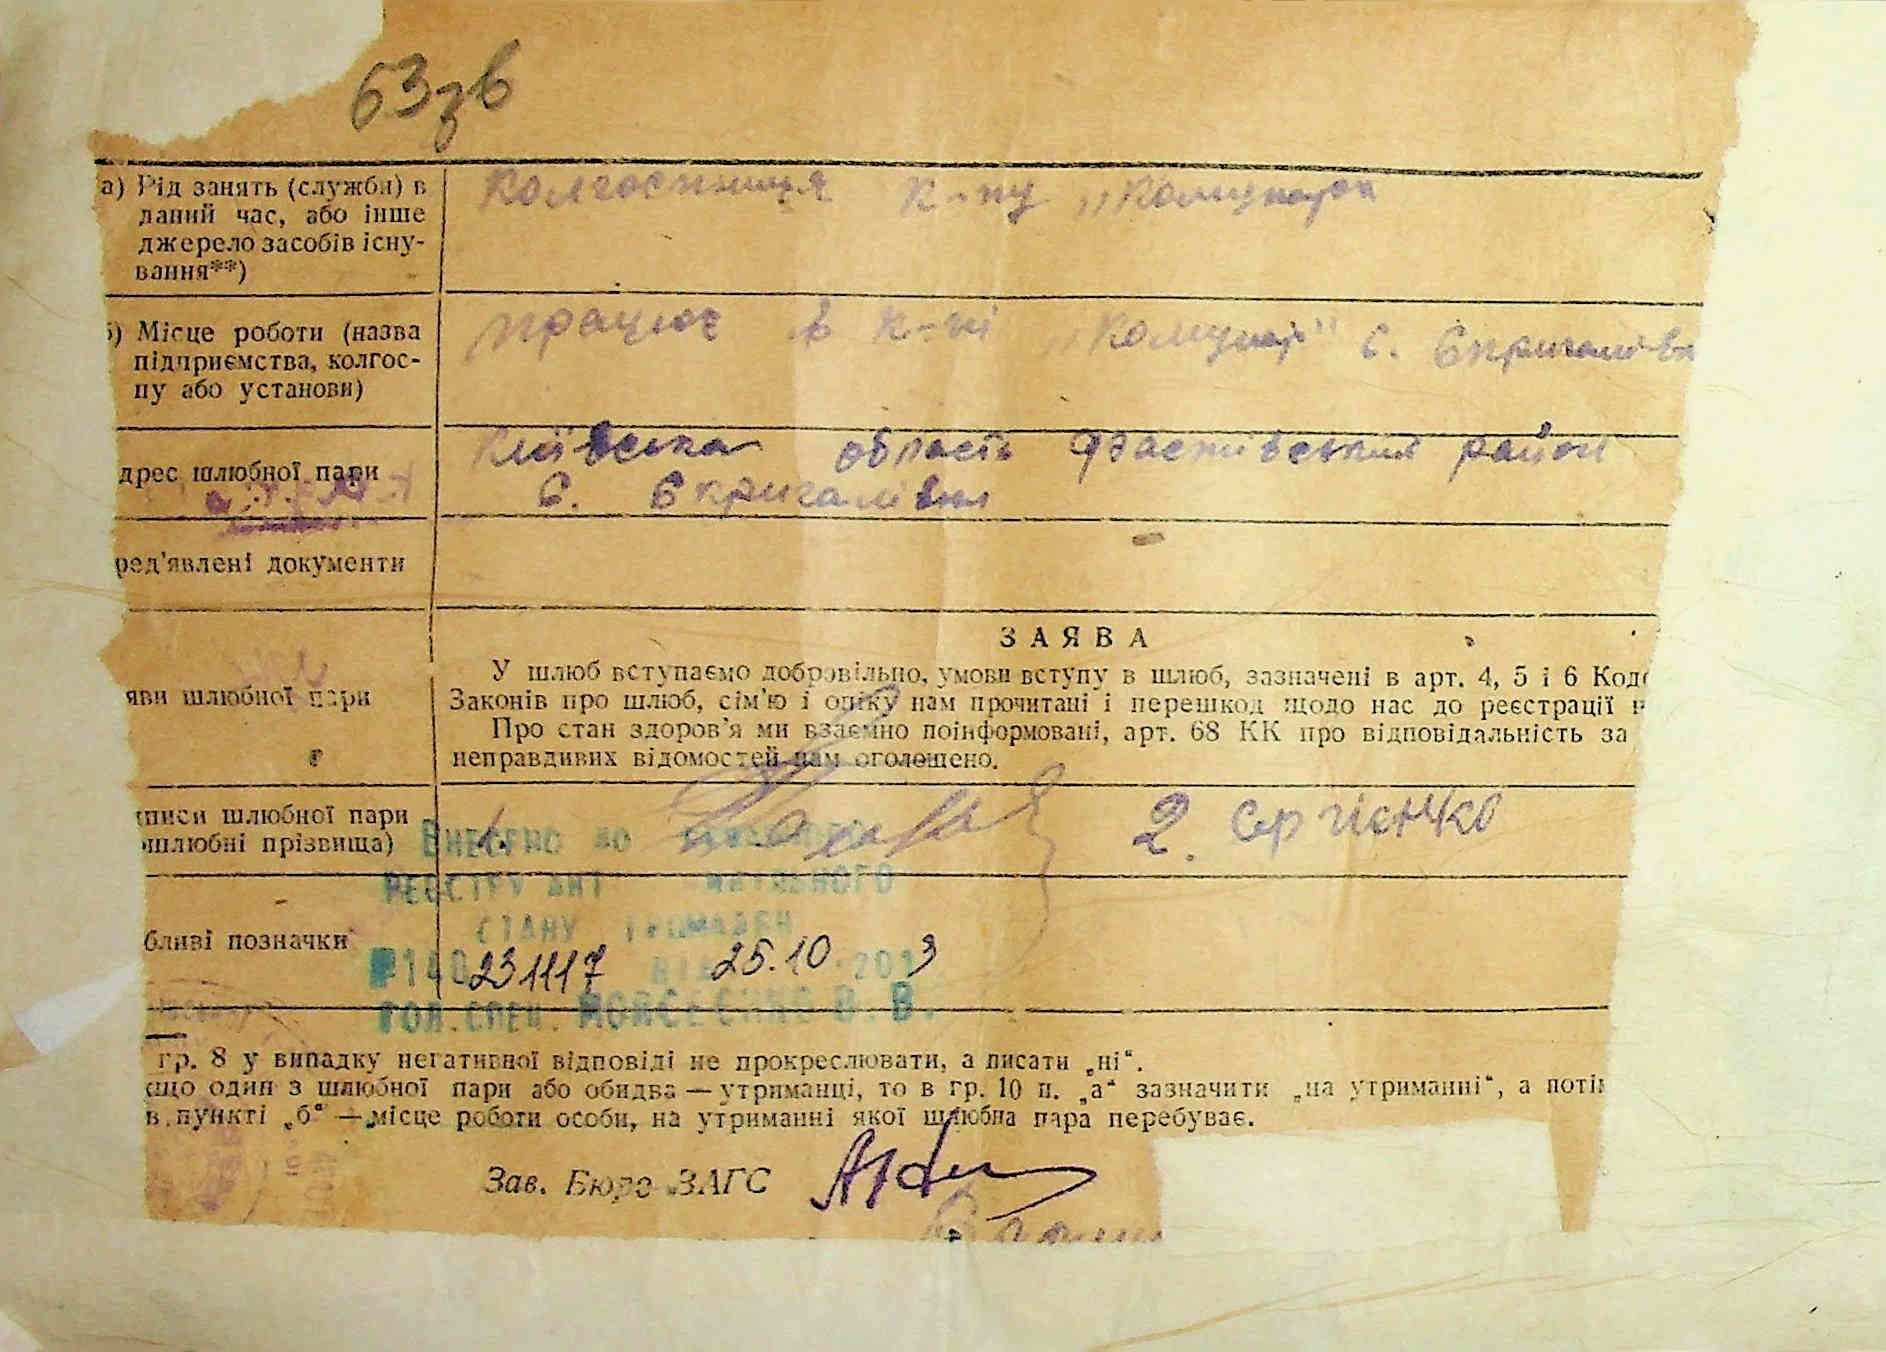 63зв
а) Рід занять (служби) в
даний час, або інше
джерело засобів існу-
вання**)
колгоспниця к-пу „Комунар"
б) Місце роботи (назва
підприємства, колгос-
пу або установи)
працює в к-пі „Комунар" с. Скригалівка
дрес шлюбної пари
Київська область Фастівський район
с. Скригалівка
ред'явлені документи
ЗАЯВА
яви шлюбної пари
У шлюб вступаємо добровільно, умови вступу в шлюб, зазначені в арт. 4, 5 і 6 Коде
Законів про шлюб, сім'ю і опіку нам прочитані і перешкод щодо нас до реєстрації
Про стан здоров'я ми взаємно поінформовані, арт. 68 КК про відповідальність за
неправдивих відомостей нам оголошено.
писи шлюбної пари
ошлюбні прізвища)
1.
2. Сергієнко
Внесено до державного
реєстру акт
стану громадян
бливі позначки
№140 231117 від 25.10.2013
Гол.спец. Мойсеєнко В. В.
гр. 8 у випадку негативної відповіді не прокреслювати, а писати „ні".
кщо один з шлюбної пари або обидва — утриманці, то в гр. 10 п. „а" зазначити „на утриманні", а потім
в пункті „б" — місце роботи особи, на утриманні якої шлюбна пара перебуває.
Зав. Бюро ЗАГС